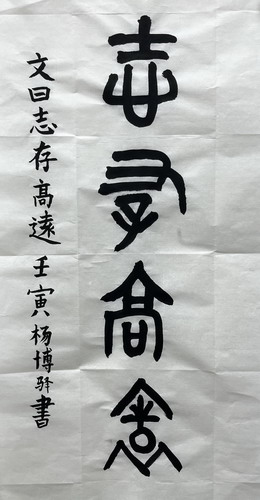 志存高远
文曰志存高遠壬寅杨博驿書